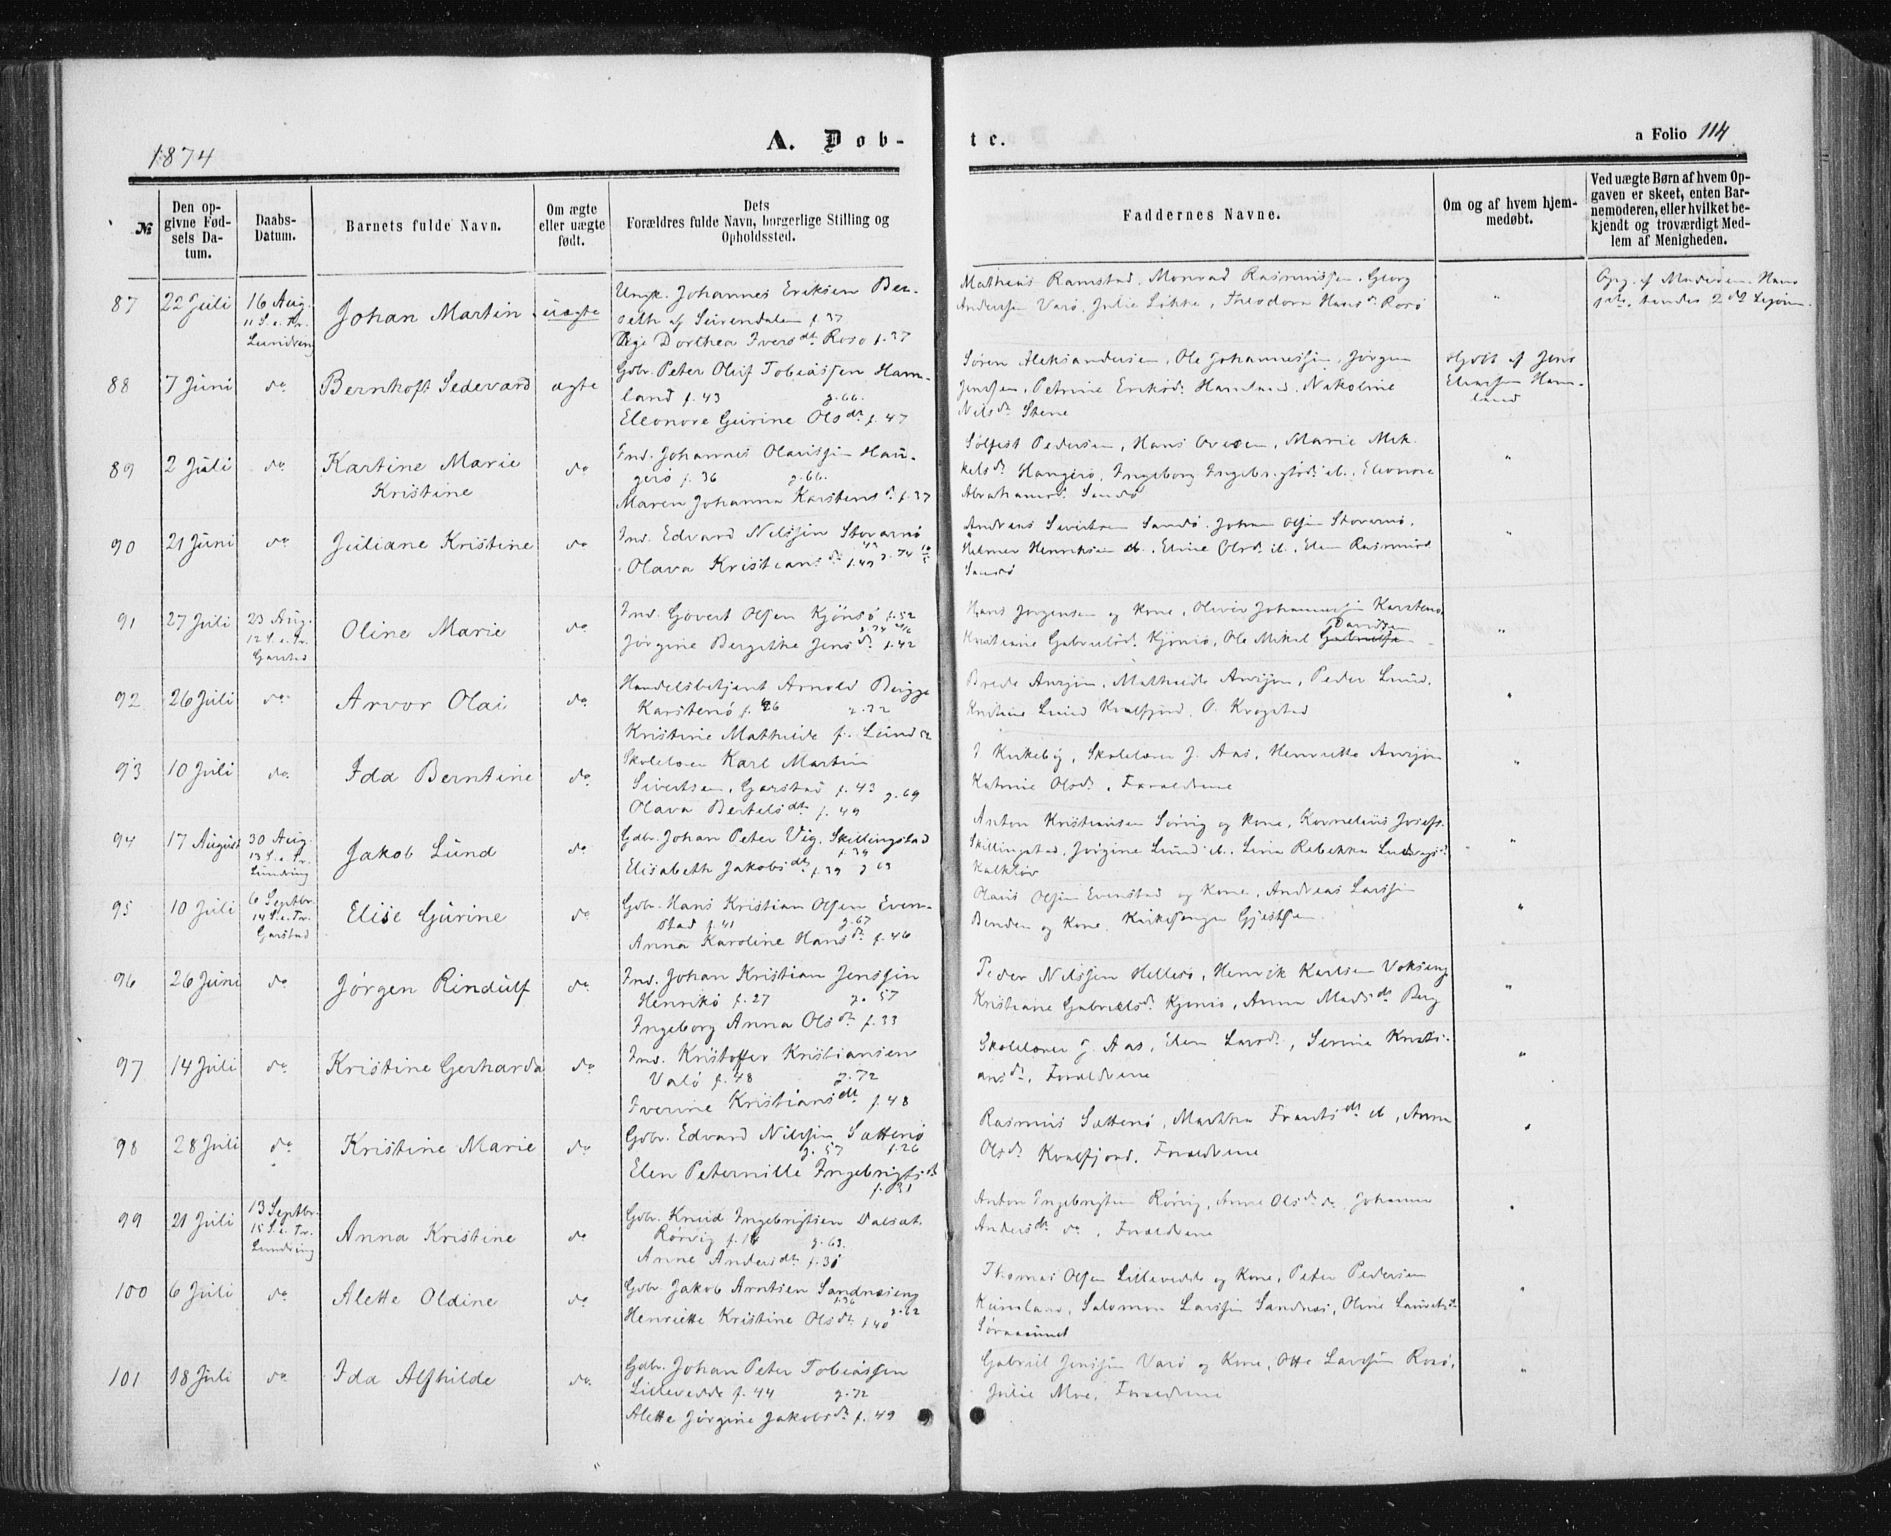 1874
A. Døb-
te.
a Folio 114
№
Den op-
givne Fød-
sels Da-
tum.
Daabs-
Datum.
Barnets fulde Navn.
Om ægte
eller uægte
født.
Dets
Forældres fulde Navn, borgerlige Stilling og
Opholdssted.
Faddernes Navne.
Om og af hvem hjem-
medøbt.
Ved uægte Børn af hvem Op-
gaven er skeet, enten Bar-
nemoderen, eller hvilket be-
kjendt og troværdigt Med-
lem af Menigheden.
87
22 Juli
16 Aug.
11 S. e. Tr.
Lundring
Johan Martin
uægte
Ungk. Johannes Eriksen Ber-
seth af Seierdalen f. 37
Pige Dorthea Iversdt Rosø f. 37
Mathæus Ramstad, Monrad Rasmussen, Georg
Andersen Varø, Julie Løkke, Theodora Hansdt Rosø
"
Opg. af Moderen. Hans
88
7 Juni
do
Bernhoft Sedevard
ægte
Gdbr. Peter Oluf Tobiassen Ham-
land f. 43 g. 66.
Eleonore Gurine Olsdt f. 47
Søren Aleksandersen, Ole Johannessen, Jørgen
Jenssen, Petrine Eriksd. Hamland, Nikoline
Nilsdt Stene
Hjdøbt af Jens
Eliassen Ham-
land
89
2 Juli
do
Kartine Marie
Kristine
do
Ind. Johannes Olaussen Hau-
gerø f. 36 g. 66.
Maren Johanna Karstensdt f. 37
Solfest Pedersen, Hans Ovesen, Marie Mik-
kelsdt Haugerø, Ingeborg Ingebrigtsd. ib., Eleonore
Abrahamsd. Sandø
"
90
21 Juni
do
Juliane Kristine
do
Ind. Edvard Nilssen Storarnø
Olava Kristiansdt f. 49 g. 74
Andreas Sivertsen Sandø, Johan Olsen Storarnø,
Helmer Henriksen ib., Eline Olsd. ib., Elen Rasmusd.
Sandø
"
91
27 Juli
23 Aug.
12 S. e. Tr.
Garstad
Oline Marie
do
Ind. Govert Olsen Kjønsø f. 52
Jørgine Bergithe Jensdt f. 42
Hans Jørgensen og Kone, Oliver Johannessen Karstenø
Davidsen
Kristiane Gabrielsd. Kjønsø, Ole Mikal Gabrielsen
"
92
26 Juli
do
Arvor Olai
do
Handelsbetjent Arnold Brygge
Karstenø f. 46 g. 72
Kristine Mathilde f. Lund 52
Brede Anzjøn, Mathilde Anzjøn, Peder Lund,
Kristine Lund Kvalfjord, O. Krogstad
"
93
10 Juli
do
Ida Berntine
do
Skolelærer Karl Martin
Sivertsen, Garstad f. 43 g. 69
Olava Bertelsdt f. 49
J Kirkeby, Skolelærer J. Aas, Henriette Anzjøn
Katrine Olsd., Forældrene
"
94
17 August
30 Aug.
13 S. e. Tr.
Lundring
Jakob Lund
do
Gdbr. Johan Peter Vig, Skillingstad
f. 34
Elisabeth Jakobsdt f. 39 g 63
Anton Kristiansen Sørvig og Kone, Kornelius Josefs.
Skillingstad, Jørgine Lund ib., Lina Rebekka Ludvigsd.
Kalkløv
"
95
10 Juli
6 Septbr.
14 S. e. Tr.
Garstad
Elise Gurine
do
Gdbr. Hans Kristian Olsen Even-
stad f. 41 g. 67
Anna Karoline Hansdt f. 46
Olaus Olsen Evenstad og Kone, Andreas Larssen
Benden og Kone, Kirkesanger Gjestsen
"
96
26 Juni
do
Jørgen Rindulf
do
Ind. Johan Kristian Jenssen
Henrikø f. 27 g. 57
Ingeborg Anna Olsdt f. 33
Peder Nilssen Hellesø, Henrik Karlsen Vokseng
Kristiane Gabrielsdt Kjønsø, Anna Madsdt Berg
"
97
14 Juli
do
Kristine Gerharda
do
Ind. Kristoffer Kristiansen
Valø f. 48 g. 72
Iverine Kristiansdt f. 48
Skolelærer J. Aas, Elen Larsd., Serine Kristi-
ansdt, Forældrene
"
98
28 Juli
do
Kristine Marie
do
Gdbr. Edvard Nilssen Sættenø
g. 57 f. 26
Elen Peternille Ingebrigtsdt
f. 31
Rasmus Sættenø, Markka Frantsdt ib, Anna
Olsdt Kvalfjord, Forældrene
"
99
21 Juli
13 Septbr.
15 S. e. Tr.
Lundring
Anna Kristine
do
Gdbr. Knud Ingebrigtsen Dalsæt.
Rørvig f. 16 g. 63.
Anne Andersdt f. 31
Anton Ingebrigtsen Rørvig, Anne Olsdt do, Johanna
Andersdt do, Forældrene
"
100
6 Juli
do
Alette Oldine
do
Gdbr Jakob Arntsen Sandnæseng
f. 36
Henriette Kristine Olsdt f. 40 g. 62
Thomas Olsen Lillevedde og Kone, Peter Pedersen
Kumland, Salomon Larssen Sandnæs, Oline Lauritsdt
Sørnæsundet
"
101
18 Juli
do
Ida Alfhilde
do
Gdbr. Johan Peter Tobiassen
Lillevedde f. 44 g. 72
Alette Jørgine Jakobsdt f. 49
Gabriel Jenssen Varø og Kone, Otte Larssen Rosø,
Julie Moe, Forældrene
"